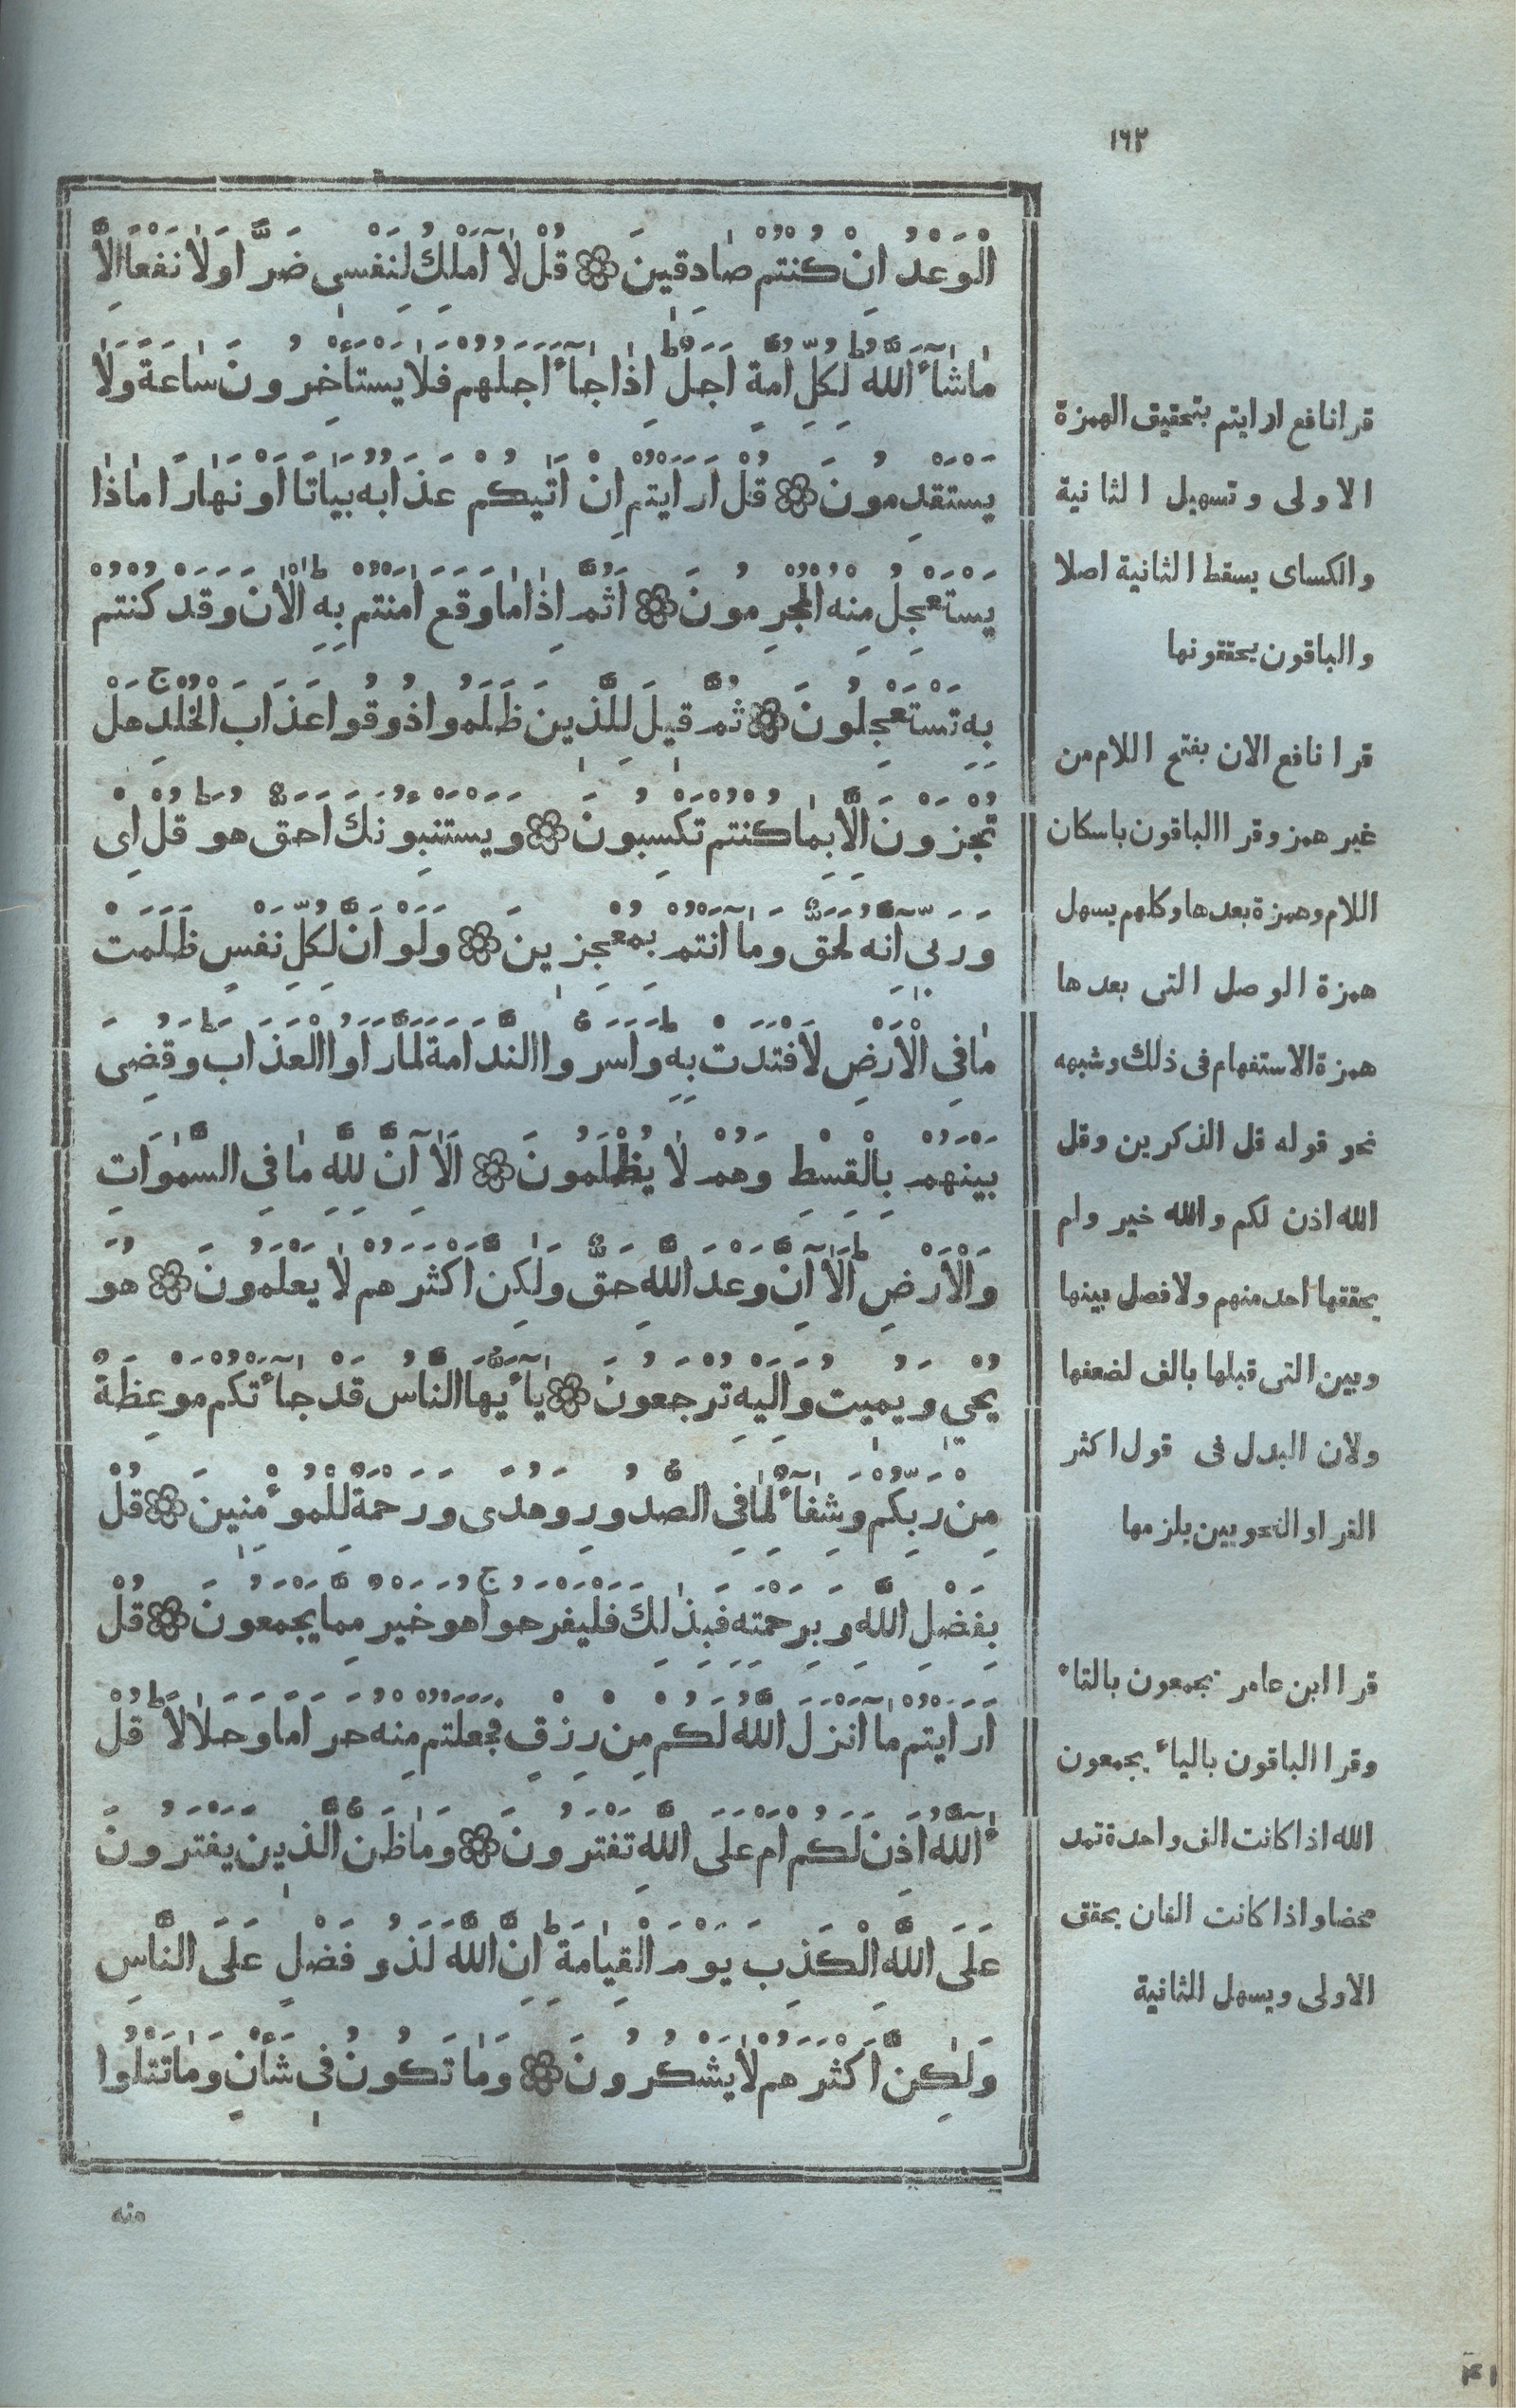 ١٦٢
الْوَعْدُ اِنْ كُنْتُمْ صَادِقِينَ ۞ قُلْ لَآ اَمْلِكُ لِنَفْسِى ضَرًّا وَلَا نَفْعًا اِلَّا
مَا شَآءَ اللّٰهُ ط لِكُلِّ اُمَّةٍ اَجَلٌ ط اِذَا جَآءَ اَجَلُهُمْ فَلَا يَسْتَأْخِرُونَ سَاعَةً وَلَا
يَسْتَقْدِمُونَ ۞ قُلْ اَرَاَيْتُمْ اِنْ اَتٰيكُمْ عَذَابُهُ بَيَاتًا اَوْ نَهَارًا مَاذَا
يَسْتَعْجِلُ مِنْهُ الْمُجْرِمُونَ ۞ اَثُمَّ اِذَا مَا وَقَعَ اٰمَنْتُمْ بِهِ ط اٰلْاٰنَ وَقَدْ كُنْتُمْ
بِهِ تَسْتَعْجِلُونَ ۞ ثُمَّ قِيلَ لِلَّذِينَ ظَلَمُوا ذُوقُوا عَذَابَ الْخُلْدِ ج هَلْ
تُجْزَوْنَ اِلَّا بِمَا كُنْتُمْ تَكْسِبُونَ ۞ وَيَسْتَنْبِؤُنَكَ اَحَقٌّ هُوَ ط قُلْ اِى
وَرَبِّىٓ اِنَّهُ لَحَقٌّ وَمَآ اَنْتُمْ بِمُعْجِزِينَ ۞ وَلَوْ اَنَّ لِكُلِّ نَفْسٍ ظَلَمَتْ
مَا فِى الْاَرْضِ لَافْتَدَتْ بِهِ ط وَاَسَرُّوا النَّدَامَةَ لَمَّا رَاَوُا الْعَذَابَ ط وَقُضِىَ
بَيْنَهُمْ بِالْقِسْطِ وَهُمْ لَا يُظْلَمُونَ ۞ اَلَآ اِنَّ لِلّٰهِ مَا فِى السَّمٰوَاتِ
وَالْاَرْضِ ط اَلَآ اِنَّ وَعْدَ اللّٰهِ حَقٌّ وَلٰكِنَّ اَكْثَرَهُمْ لَا يَعْلَمُونَ ۞ هُوَ
يُحْيِ وَيُمِيتُ وَاِلَيْهِ تُرْجَعُونَ ۞ يَآ أَيُّهَا النَّاسُ قَدْ جَآءَتْكُمْ مَوْعِظَةٌ
مِنْ رَبِّكُمْ وَشِفَآءٌ لِمَا فِى الصُّدُورِ وَهُدًى وَرَحْمَةٌ لِلْمُؤْمِنِينَ ۞ قُلْ
بِفَضْلِ اللّٰهِ وَبِرَحْمَتِهِ فَبِذٰلِكَ فَلْيَفْرَحُوا ج هُوَ خَيْرٌ مِمَّا يَجْمَعُونَ ۞ قُلْ
اَرَاَيْتُمْ مَآ اَنْزَلَ اللّٰهُ لَكُمْ مِنْ رِزْقٍ فَجَعَلْتُمْ مِنْهُ حَرَامًا وَحَلَالًا ط قُلْ
ءٓاللّٰهُ اَذِنَ لَكُمْ اَمْ عَلَى اللّٰهِ تَفْتَرُونَ ۞ وَمَا ظَنُّ الَّذِينَ يَفْتَرُونَ
عَلَى اللّٰهِ الْكَذِبَ يَوْمَ الْقِيَامَةِ ط اِنَّ اللّٰهَ لَذُو فَضْلٍ عَلَى النَّاسِ
وَلٰكِنَّ اَكْثَرَهُمْ لَا يَشْكُرُونَ ۞ وَمَا تَكُونُ فِى شَأْنٍ وَمَا تَتْلُوا
منه
قرا نافع ارايتم بتحقيق الهمزة
الاولى وتسهيل الثانية
والكساى يسقط الثانية اصلا
والباقون يحققونها
قرا نافع الان بفتح اللام من
غير همز وقرا الباقون باسكان
اللام وهمزة بعدها وكلهم يسهل
همزة الوصل التى بعدها
همزة الاستفهام فى ذلك وشبهه
نحو قوله قل الذكرين وقل
الله اذن لكم والله خير ولم
يحققها احد منهم ولا فصل بينها
وبين التى قبلها بالف لضعفها
ولان البدل فى قول اكثر
القرا والنحويين يلزمها
قرا ابن عامر تجمعون بالتاء
وقرا الباقون بالياء يجمعون
الله اذا كانت الف واحدة تمد
محضا واذا كانت الفان يحقق
الاولى ويسهل الثانية
٤١